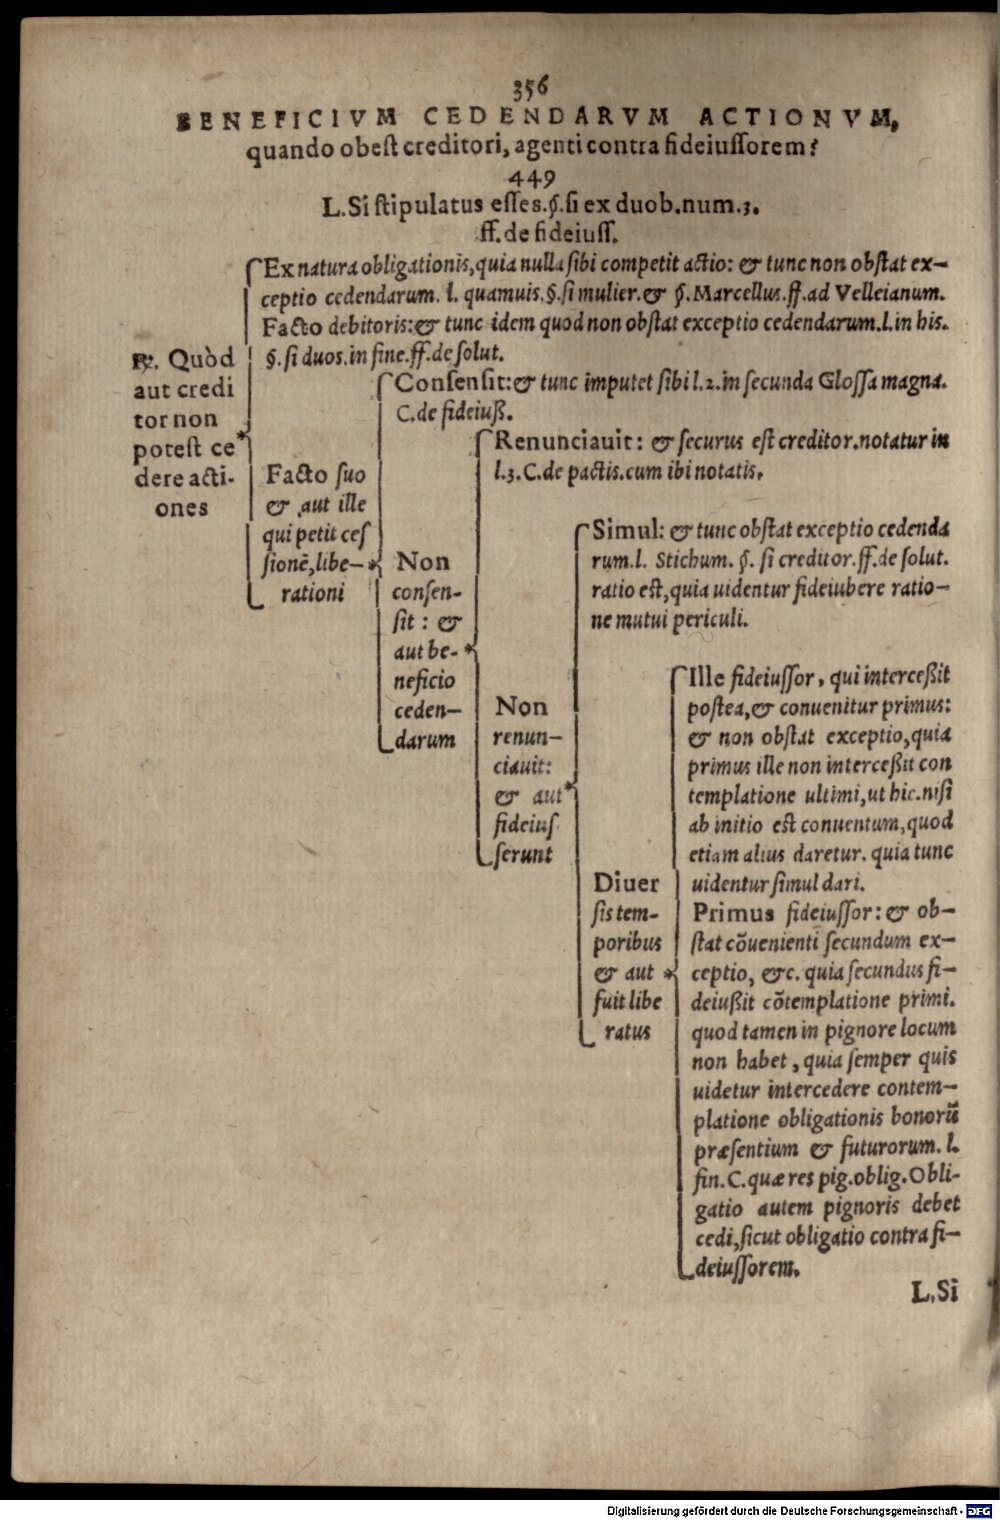 356
BENEFICIVM CEDENDARVM ACTIONVM,
quando obest creditori, agenti contra fideiussorem?
449
L.Si stipulatus esses.§.si ex duob.num.3.
ff.de fideiuss.
℞. Quòd
aut credi
tor non
potest ce
dere acti-
ones
Ex natura obligationis,quia nulla sibi competit actio: & tunc non obstat ex-
ceptio cedendarum. l. quamuis.§.si mulier.& §.Marcellus.ff.ad Velleianum.
Facto debitoris:& tunc idem quod non obstat exceptio cedendarum.l.in his.
§.si duos.in fine.ff.de solut.
Facto suo
& aut ille
qui petit ces
sionē,libe-
rationi
Consensit:& tunc imputet sibi l.2.in secunda Glossa magna.
C.de fideiuß.
Non
consen-
sit : &
aut be-
neficio
ceden-
darum
Renunciauit: & securus est creditor.notatur in
l.3.C.de pactis.cum ibi notatis.
Non
renun-
ciauit:
& aut
fideius
serunt
Simul: & tunc obstat exceptio cedenda
rum.l. Stichum. §. si creditor.ff.de solut.
ratio est,quia uidentur fideiubere ratio-
ne mutui periculi.
Diuer
sis tem-
poribus
& aut
fuit libe
ratus
Ille fideiussor, qui interceßit
postea,& conuenitur primus:
& non obstat exceptio,quia
primus ille non interceßit con
templatione ultimi,ut hic.nisi
ab initio est conuentum,quod
etiam alius daretur. quia tunc
uidentur simul dari.
Primus fideiussor: & ob-
stat cōuenienti secundum ex-
ceptio, &c. quia secundus fi-
deiußit cōtemplatione primi.
quod tamen in pignore locum
non habet, quia semper quis
uidetur intercedere contem-
platione obligationis bonorū
præsentium & futurorum. l.
fin.C.quæ res pig.oblig.Obli-
gatio autem pignoris debet
cedi,sicut obligatio contra fi-
deiussorem.
L.Si
Digitalisierung gefördert durch die Deutsche Forschungsgemeinschaft - DFG